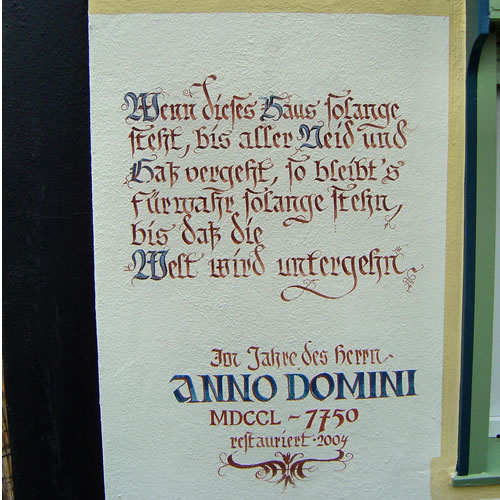 Wenn dieses Haus solange
steht, bis aller Neid und
Haß vergeht, so bleibt's
fürwahr solange stehn,
bis daß die
Welt wird untergehn.
Im Jahre des Herrn
ANNO DOMINI
MDCCL ~ 7750
restauriert · 2004